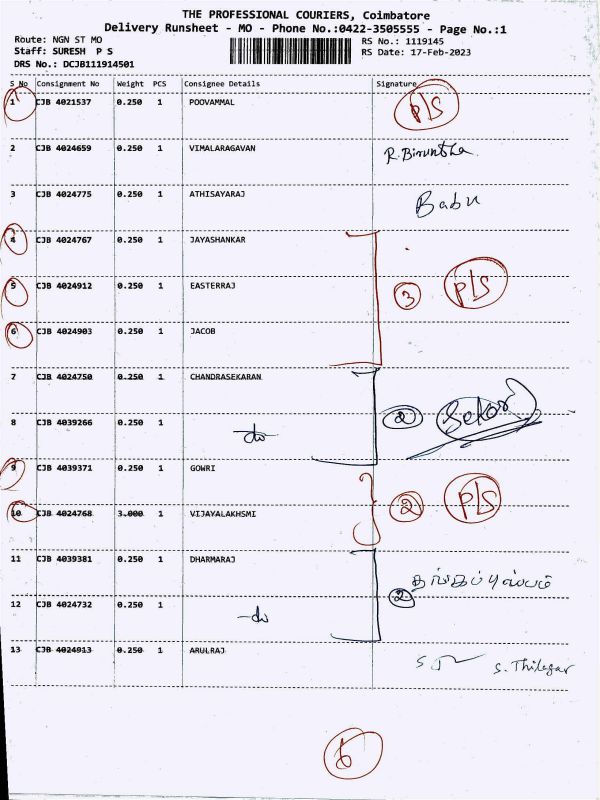 THE PROFESSIONAL COURIERS, Coimbatore
Delivery Runsheet - MO - Phone No.:0422-3505555 - Page No.:1
Route: NGN ST MO RS No.: 1119145
Staff: SURESH P S RS Date: 17-Feb-2023
DRS No.: DCJB111914501
S No Consignment No Weight PCS Consignee Details Signature
1 CJB 4021537 0.250 1 POOVAMMAL P/S
2 CJB 4024659 0.250 1 VIMALARAGAVAN R. Biruntha
3 CJB 4024775 0.250 1 ATHISAYARAJ Babu
4 CJB 4024767 0.250 1 JAYASHANKAR
5 CJB 4024912 0.250 1 EASTERRAJ 3 P/S
6 CJB 4024903 0.250 1 JACOB
7 CJB 4024750 0.250 1 CHANDRASEKARAN
8 CJB 4039266 0.250 1 do 2 Sekar
9 CJB 4039371 0.250 1 GOWRI
10 CJB 4024768 3.000 1 VIJAYALAKHSMI 2 P/S
11 CJB 4039381 0.250 1 DHARMARAJ தங்கப்புஸ்பம்
12 CJB 4024732 0.250 1 do 2
13 CJB 4024913 0.250 1 ARULRAJ S. Thilagar
6